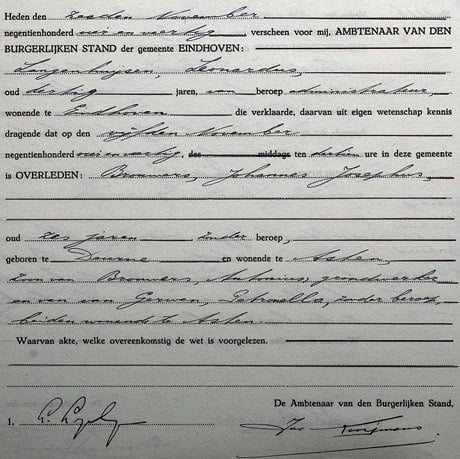 Heden den zesden November
negentienhonderd vier en veertig, verscheen voor mij, AMBTENAAR VAN DEN
BURGERLIJKEN STAND der gemeente EINDHOVEN:
Langenhuijsen, Leonardus,
oud dertig jaren, van beroep administrateur,
wonende te Eindhoven die verklaarde, daarvan uit eigen wetenschap kennis
dragende dat op den vijfden November
negentienhonderd vier en veertig, des middags ten dertien ure in deze gemeente
is OVERLEDEN: Brouwers, Johannes Josephus,
oud zes jaren, zonder beroep,
geboren te Deurne en wonende te Asten,
zoon van Brouwers, Antonius, grondwerker
en van van Gerwen, Petronella, zonder beroep,
beiden wonende te Asten.
Waarvan akte, welke overeenkomstig de wet is voorgelezen.
De Ambtenaar van den Burgerlijken Stand,
1.